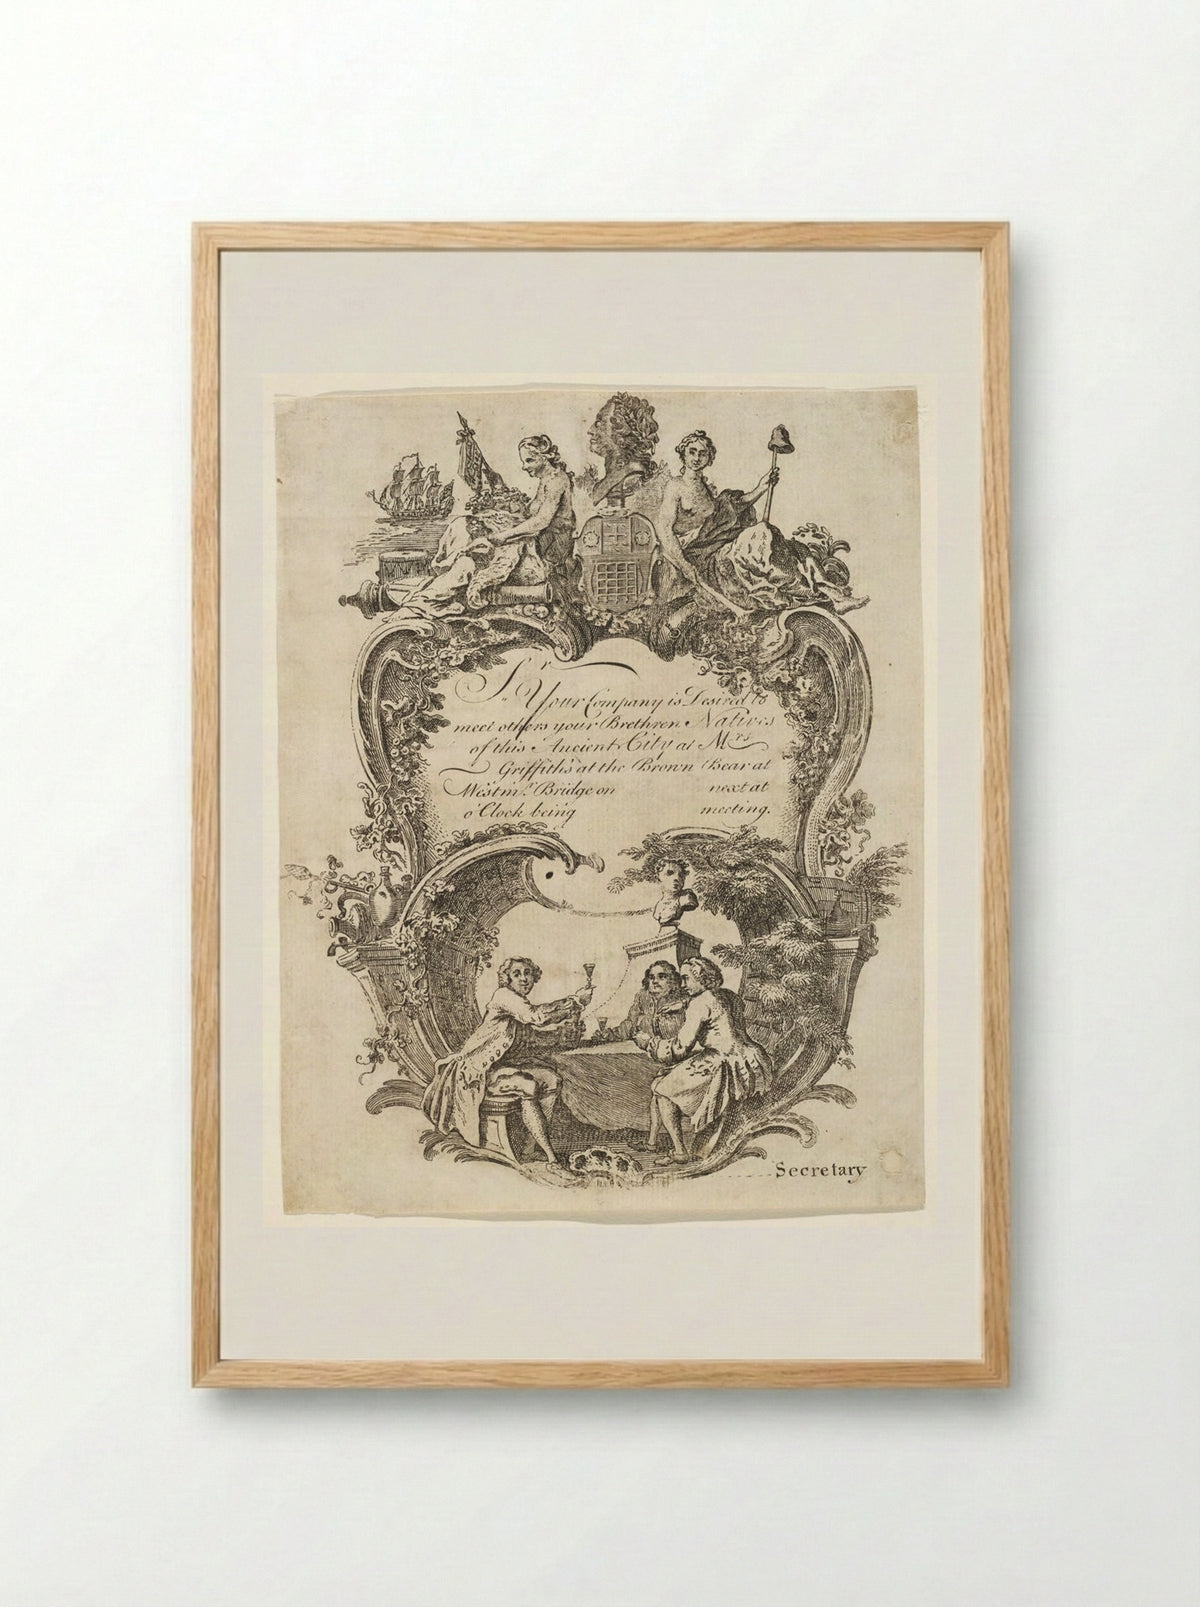 Sr. Your Company is Desired to
meet others your Brethren Natives
of this Ancient City at Mrs
Griffith's at the Brown Bear at
Westmr. Bridge on next at
o'Clock being meeting.
Secretary